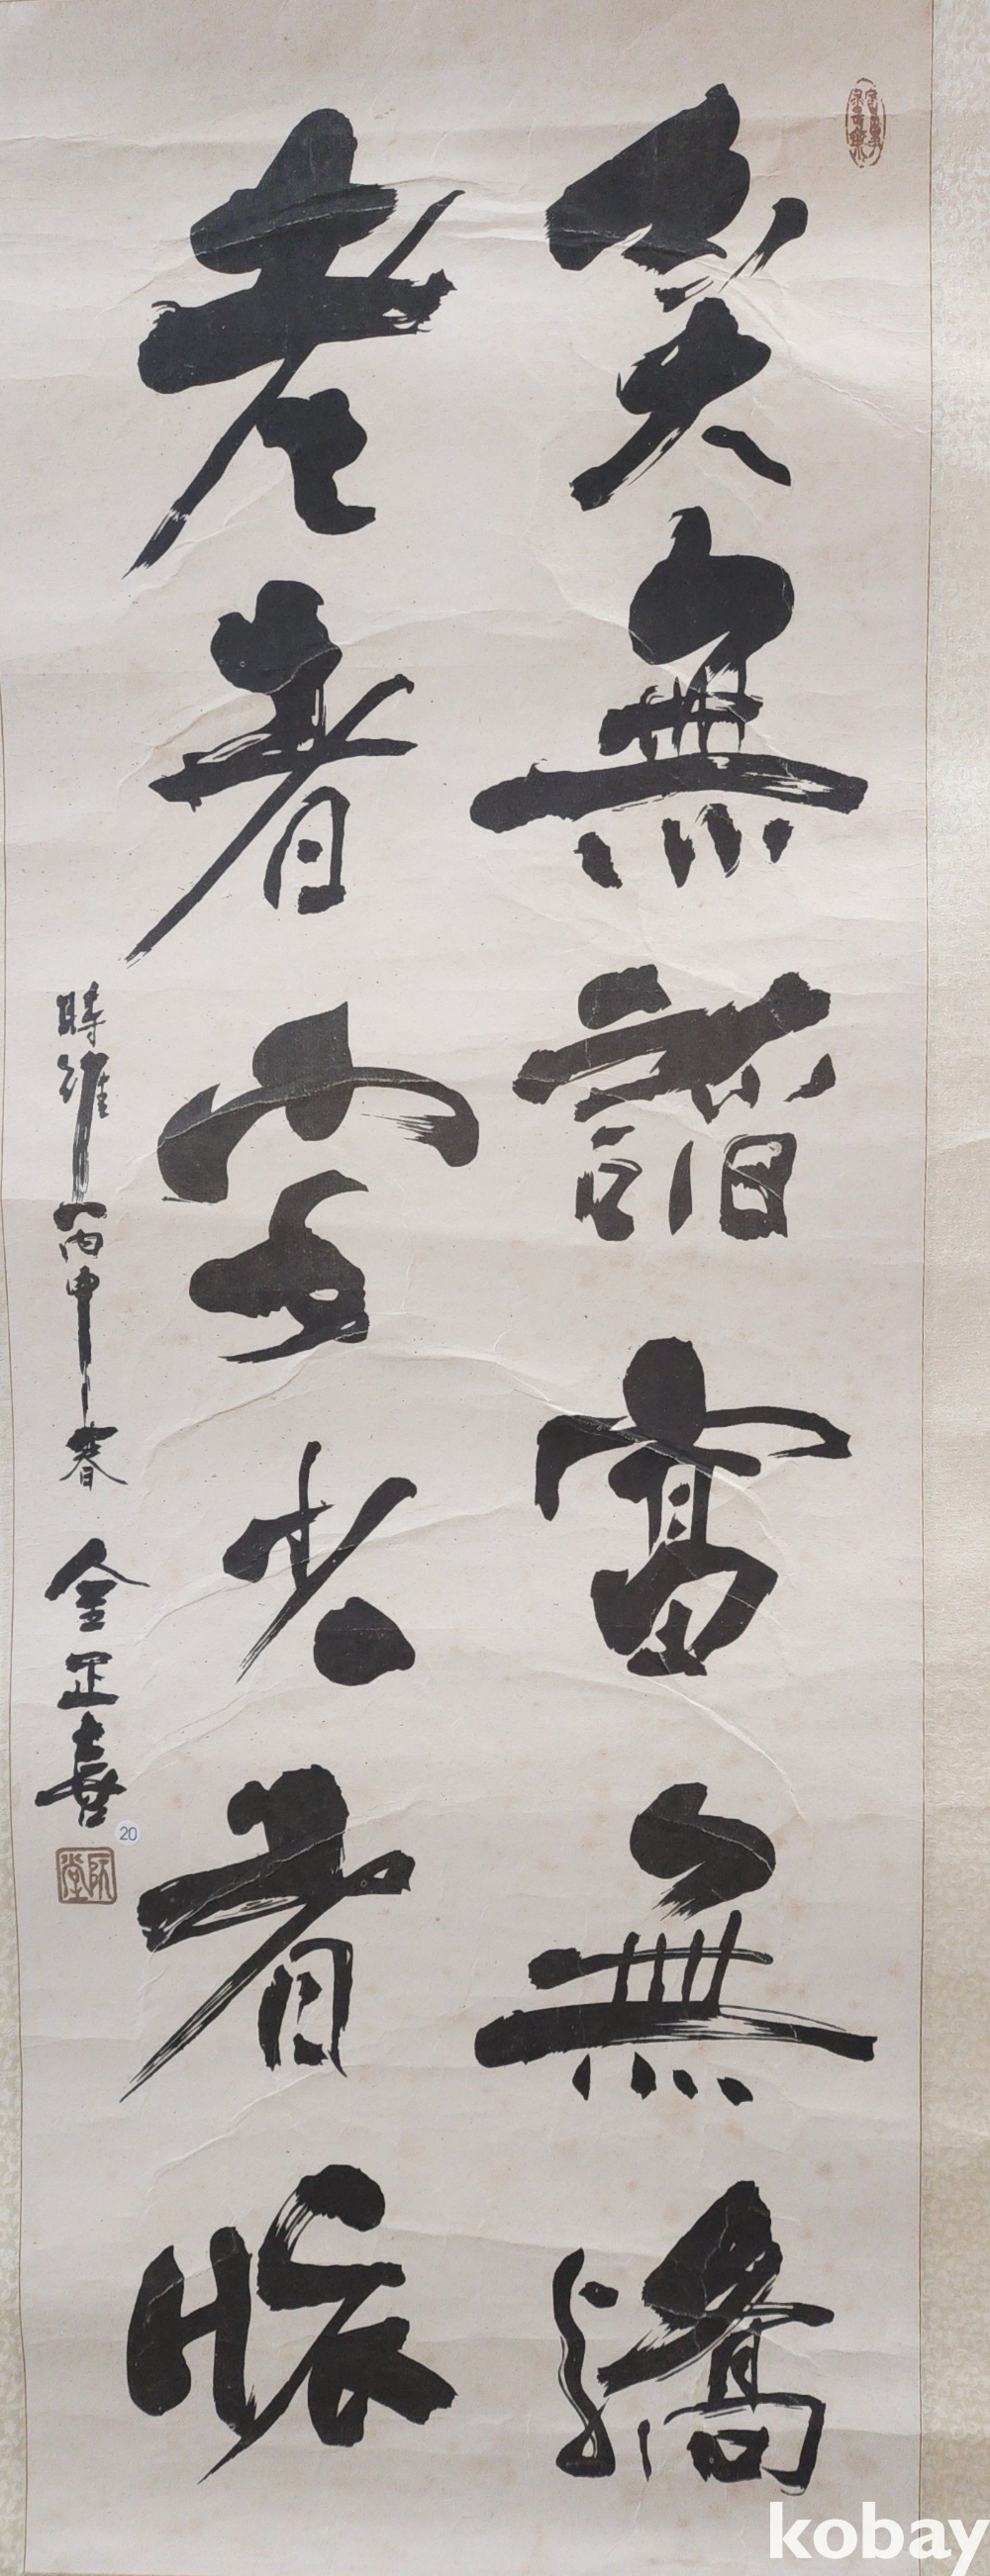 貧無諂富無驕
老者安少者懷
時維丙申春 金正喜
20
阮堂
kobay